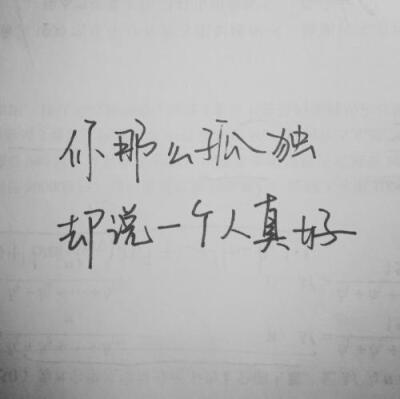 你那么孤独
却说一个人真好